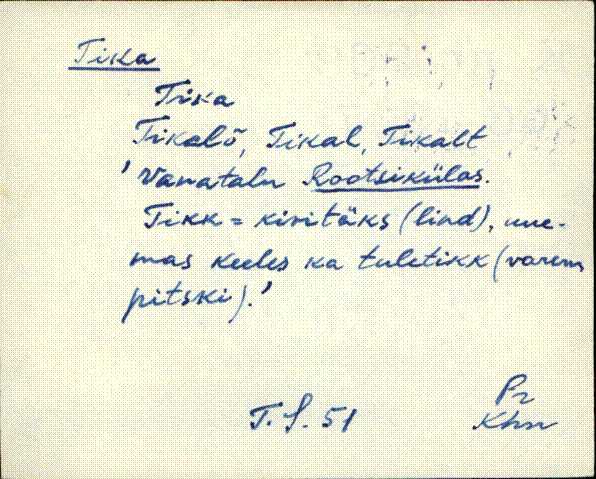 Tika
Tika
Tikalõ, Tikal, Tikalt
'Vanatalu Rootsikülas.
Tikk = kivitäks (lind), uue-
mas keeles ka tuletikk (varem
pitski).'
T. S. 51
Pr
Khn